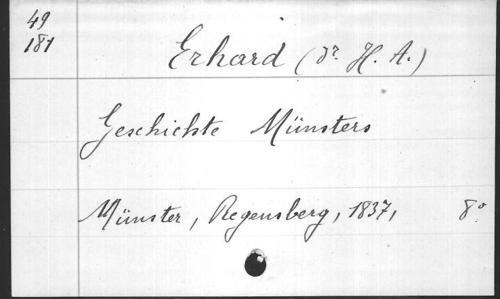 49
181
Erhard (Dr. H. A.)
Geschichte Münsters
Münster, Regensberg, 1837, 8°